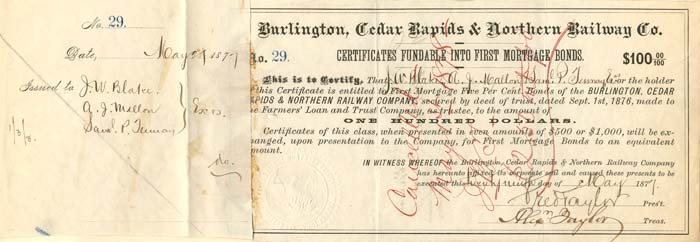 No. 29.
Date, May 29 1877
Issued to J. W. Blake
A. J. Mellon
Saml. P. Tunney
Exrs.
do.
Burlington, Cedar Rapids & Northern Railway Co.
No. 29. CERTIFICATES FUNDABLE INTO FIRST MORTGAGE BONDS. $100 00/100
This is to Certify, That J W Blake A. J. Mellon Saml. P. or the holder
of this Certificate is entitled to First Mortgage Five Per Cent. Bonds of the BURLINGTON, CEDAR
RAPIDS & NORTHERN RAILWAY COMPANY, secured by deed of trust, dated Sept. 1st, 1876, made to
the Farmers' Loan and Trust Company, as trustee, to the amount of
ONE HUNDRED DOLLARS.
Certificates of this class, when presented in even amounts of $500 or $1,000, will be ex-
changed, upon presentation to the Company, for First Mortgage Bonds to an equivalent
amount.
IN WITNESS WHEREOF the Burlington, Cedar Rapids & Northern Railway Company
has hereunto affixed its corporate seal and caused these presents to be
executed this twenty ninth day of May 1877.
Fred Taylor Pres't.
Alexn Taylor Treas.
Cancelled